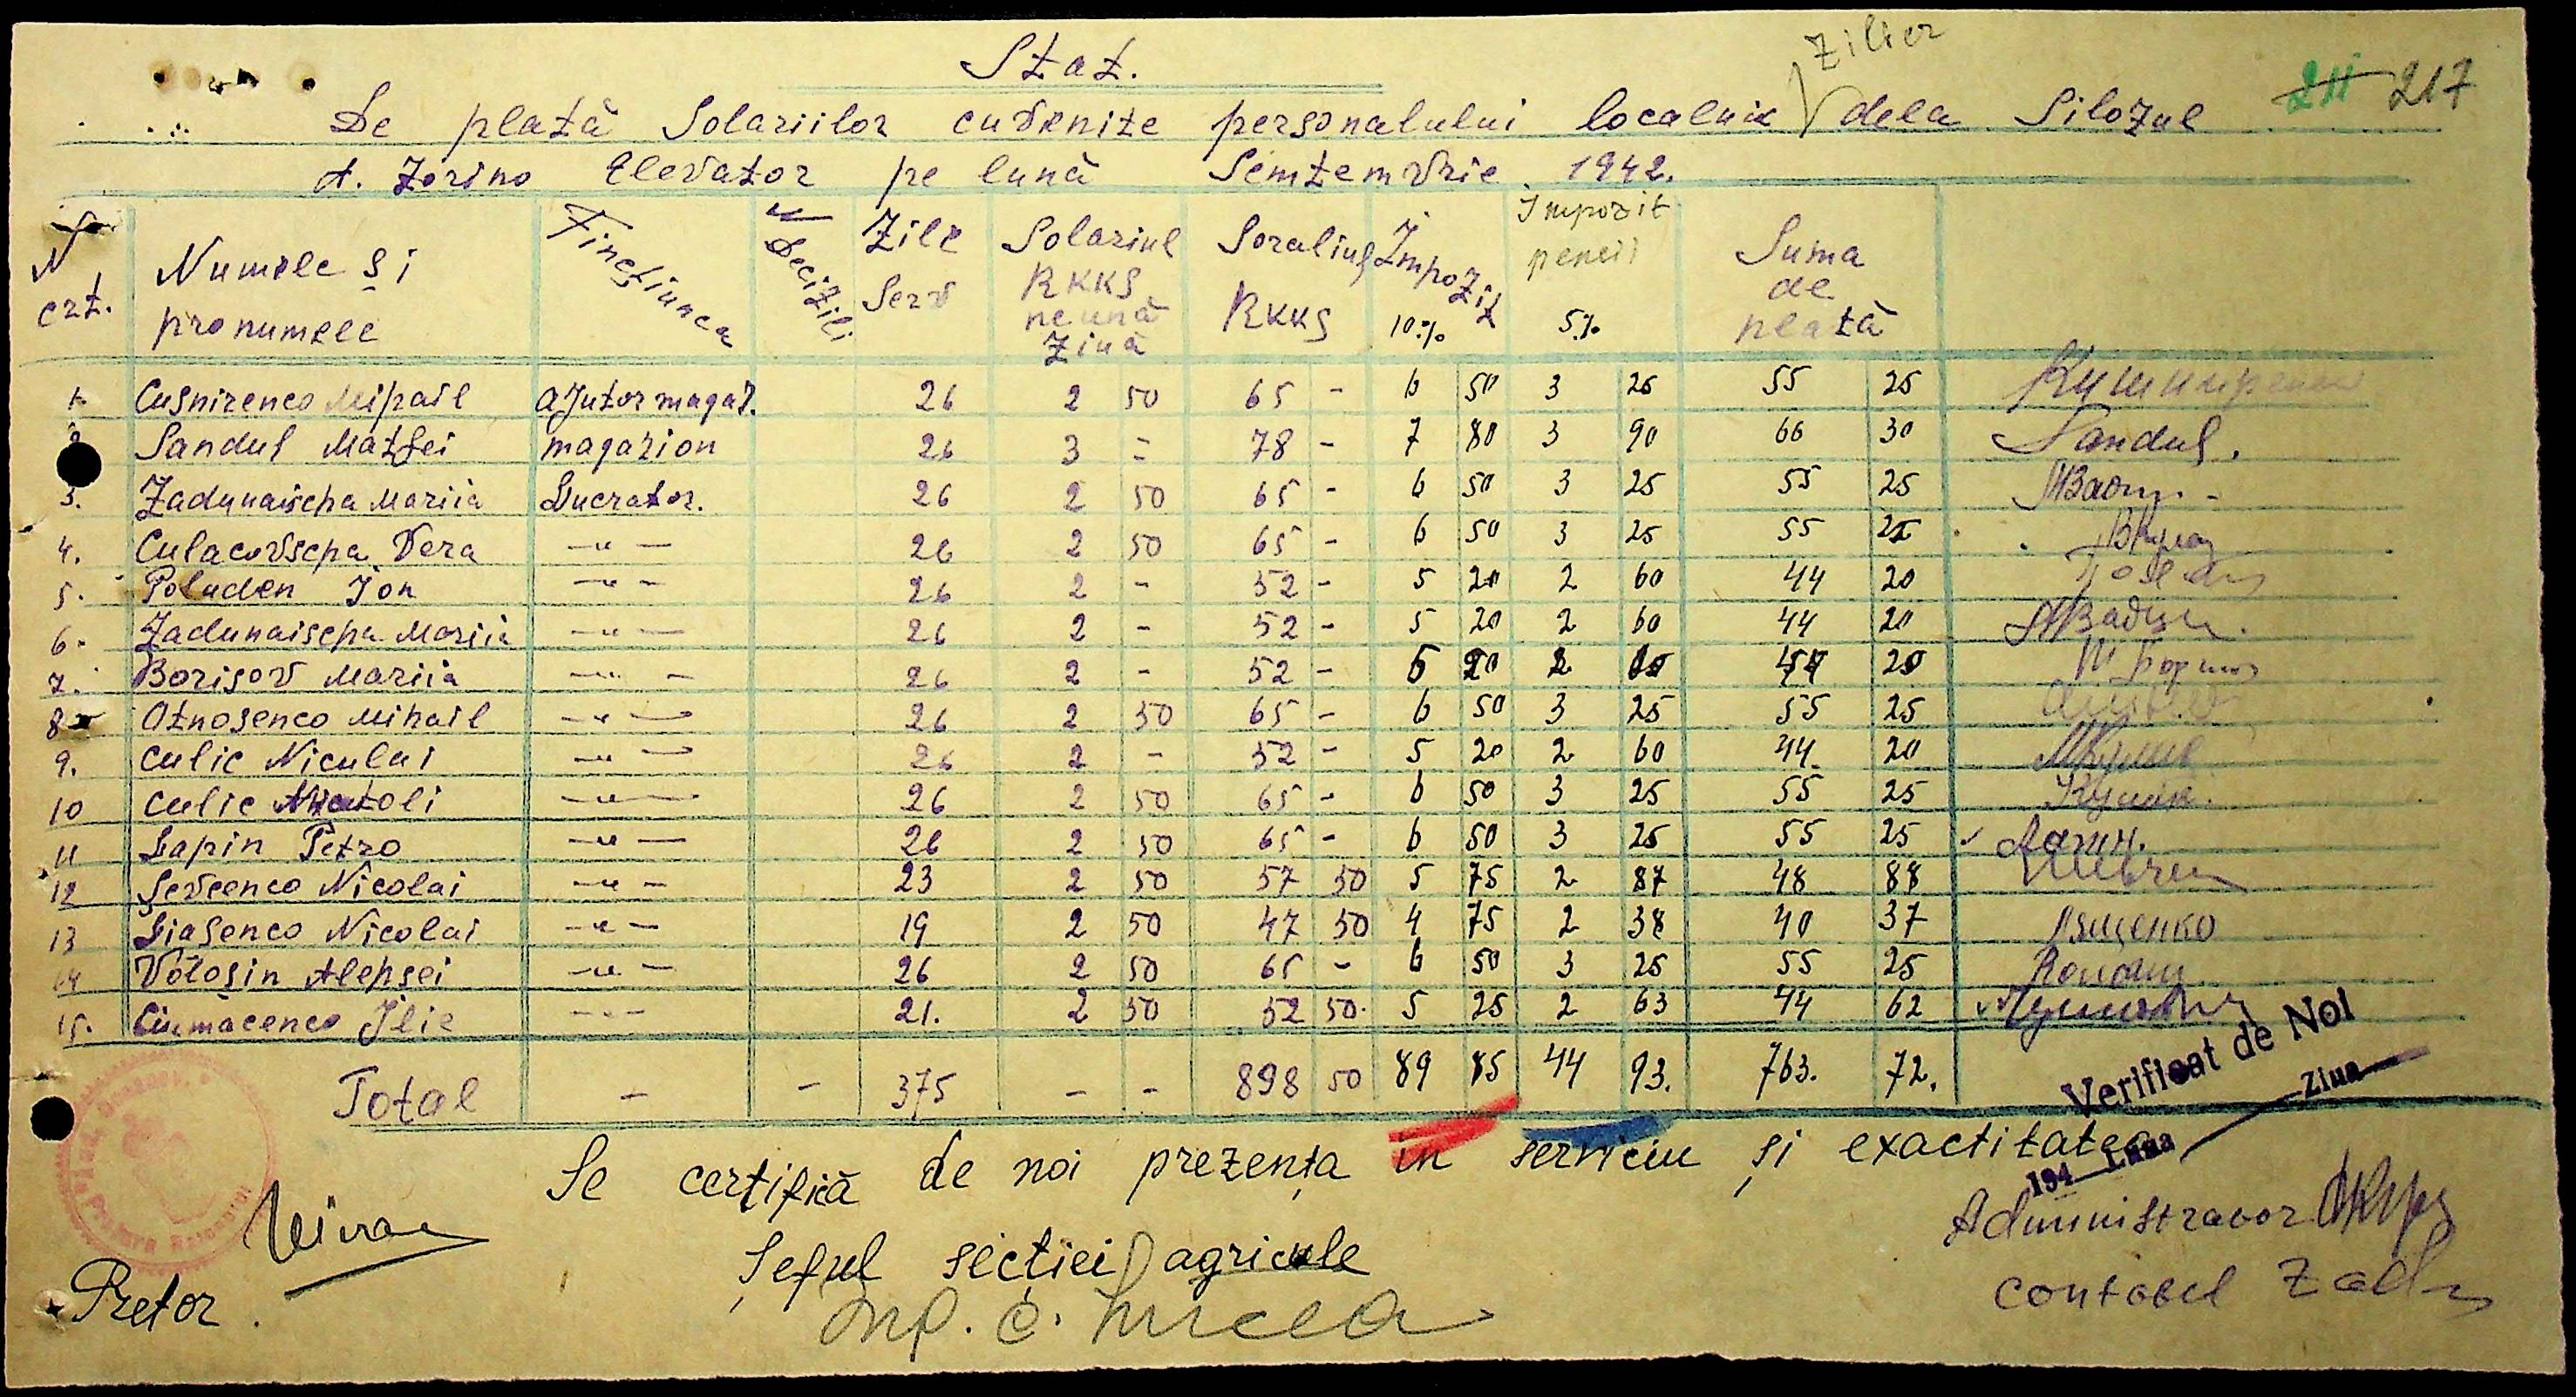 Zilier
Stat.
211 217
De plată Solariilor cuvenite personalului localnic dela Silozul
A. Zorino Elevator pe lună Semtemvrie 1942.
N crt. Numele și pronumele Fincțiunea N Decizili Zile Serv Solariul RKKS pe ună Ziuă Soraliul RKKS Impozit 10% Impozit pencii 5% Suma de plată
1. Cusnirenco Mihail Ajutor magaz. 26 2 50 65 - 6 50 3 25 55 25
2 Sandul Matfei magazion 26 3 - 78 - 7 80 3 90 66 30 Sandul.
3. Zadunaischa Mariia Lucrator. 26 2 50 65 - 6 50 3 25 55 25
4. Culacovscha Vera -"- 26 2 50 65 - 6 50 3 25 55 25
5. Poluden Ion -"- 26 2 - 52 - 5 20 2 60 44 20
6. Zadunaischa Mariia -"- 26 2 - 52 - 5 20 2 60 44 20
7. Borisov Mariia -"- 26 2 - 52 - 5 20 2 60 44 20
8 Otnosenco Mihail -"- 26 2 50 65 - 6 50 3 25 55 25
9. Culic Niculai -"- 26 2 - 52 - 5 20 2 60 44 20
10 Culic Anatoli -"- 26 2 50 65 - 6 50 3 25 55 25
11 Lapin Petro -"- 26 2 50 65 - 6 50 3 25 55 25 Лапин.
12 Sevcenco Nicolai -"- 23 2 50 57 50 5 75 2 87 48 88
13 Liasenco Nicolai -"- 19 2 50 47 50 4 75 2 38 40 37 Лященко
14 Volosin Alehsei -"- 26 2 50 65 - 6 50 3 25 55 25
15. Ciumacenco Ilie -"- 21. 2 50 52 50. 5 25 2 63 44 62
Total - - 375 - - 898 50 89 85 44 93. 763. 72.
Verificat de Noi
194 Luna Ziua
Se certifică de noi prezența in serviciu și exactitatea
Pretor.
Șeful secției agricole
Ing. C. Mircea
Administrator
Contabel Zad